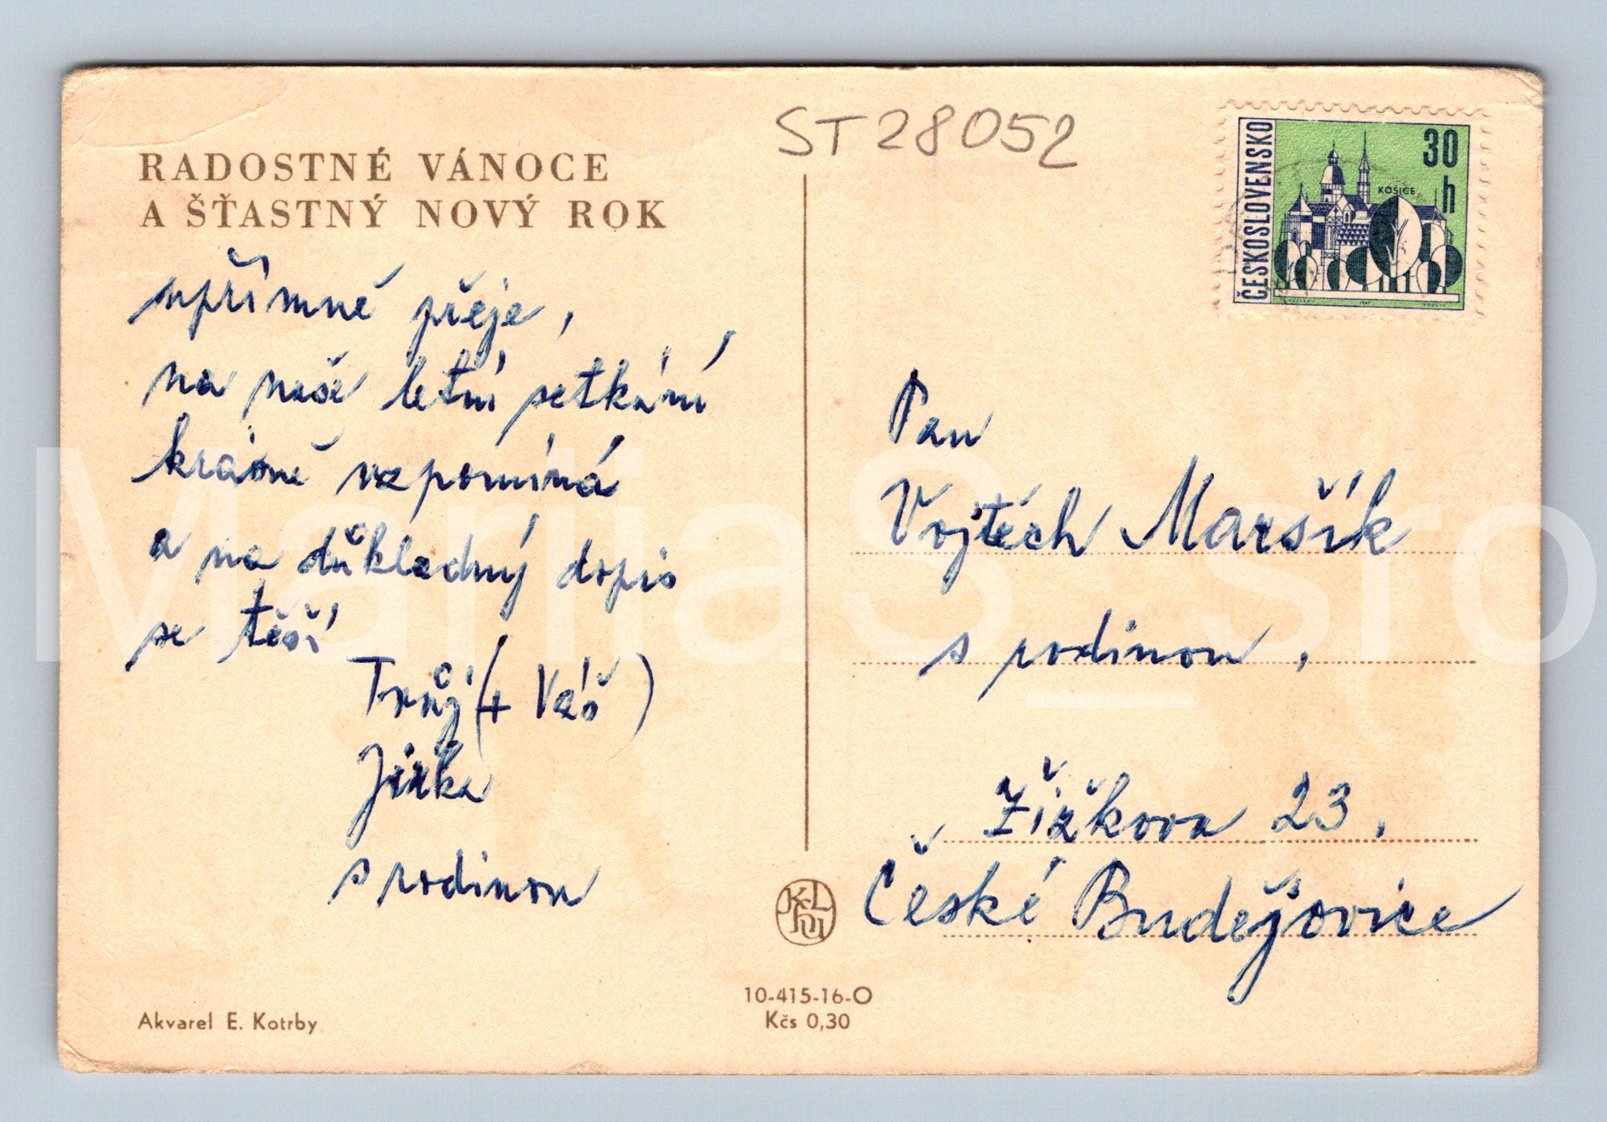 ST28052
RADOSTNÉ VÁNOCE
A ŠŤASTNÝ NOVÝ ROK
upřímně přeje,
na naše letní setkání
krásně vzpomíná
a na důkladný dopis
se těší
Tvůj (+ Váš)
Jirka
s rodinou
Akvarel E. Kotrby
10-415-16-O
Kčs 0,30
ČESKOSLOVENSKO
30
h
KOŠICE
Pan
Vojtěch Maršík
s rodinou,
Žižkova 23,
České Budějovice
MarijaS_sro